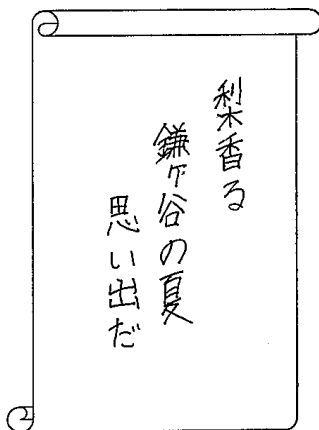 梨香る
鎌ケ谷の夏
思い出だ